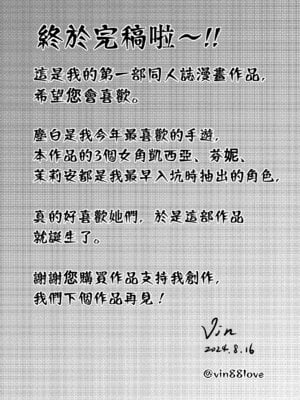 終於完稿啦～!!
這是我的第一部同人誌漫畫作品,
希望您會喜歡。
塵白是我今年最喜歡的手遊,
本作品的3個女角凱西亞、芬妮、
茉莉安都是我最早入坑時抽出的角色,
真的好喜歡她們，於是這部作品
就誕生了。
謝謝您購買作品支持我創作,
我們下個作品再見！
Vin
2024.8.16
@vin88love